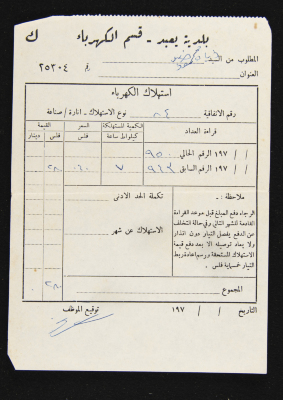 بلدية يعبد - قسم الكهرباء ك
المطلوب من السيد
العنوان
رقم ٢٥٣٠٤
استهلاك الكهرباء
رقم الاتفاقية ٨٤ نوع الاستهلاك - انارة / صناعة
قراءة العداد
الكمية المستهلكة
كيلواط ساعة
السعر
فلس
القيمة
فلس دينار
/ / ١٩٧ الرقم الحالي ٩٥٠
/ / ١٩٧ الرقم السابق ٩٤٣ ٧ ٠٤٠ ٢٨٠
ملاحظة :
الرجاء دفع المبلغ قبل موعد القراءة
القادمة للشهر التالي وفي حالة التخلف
عن الدفع يفصل التيار دون انذار
ولا يعاد توصيله الا بعد دفع قيمة
الاستهلاك المستحقة ورسم اعادة ربط
التيار خمسماية فلس .
تكملة الحد الادنى
الاستهلاك عن شهر
المجموع ٢٨٠
التاريخ / / ١٩٧
توقيع الموظف